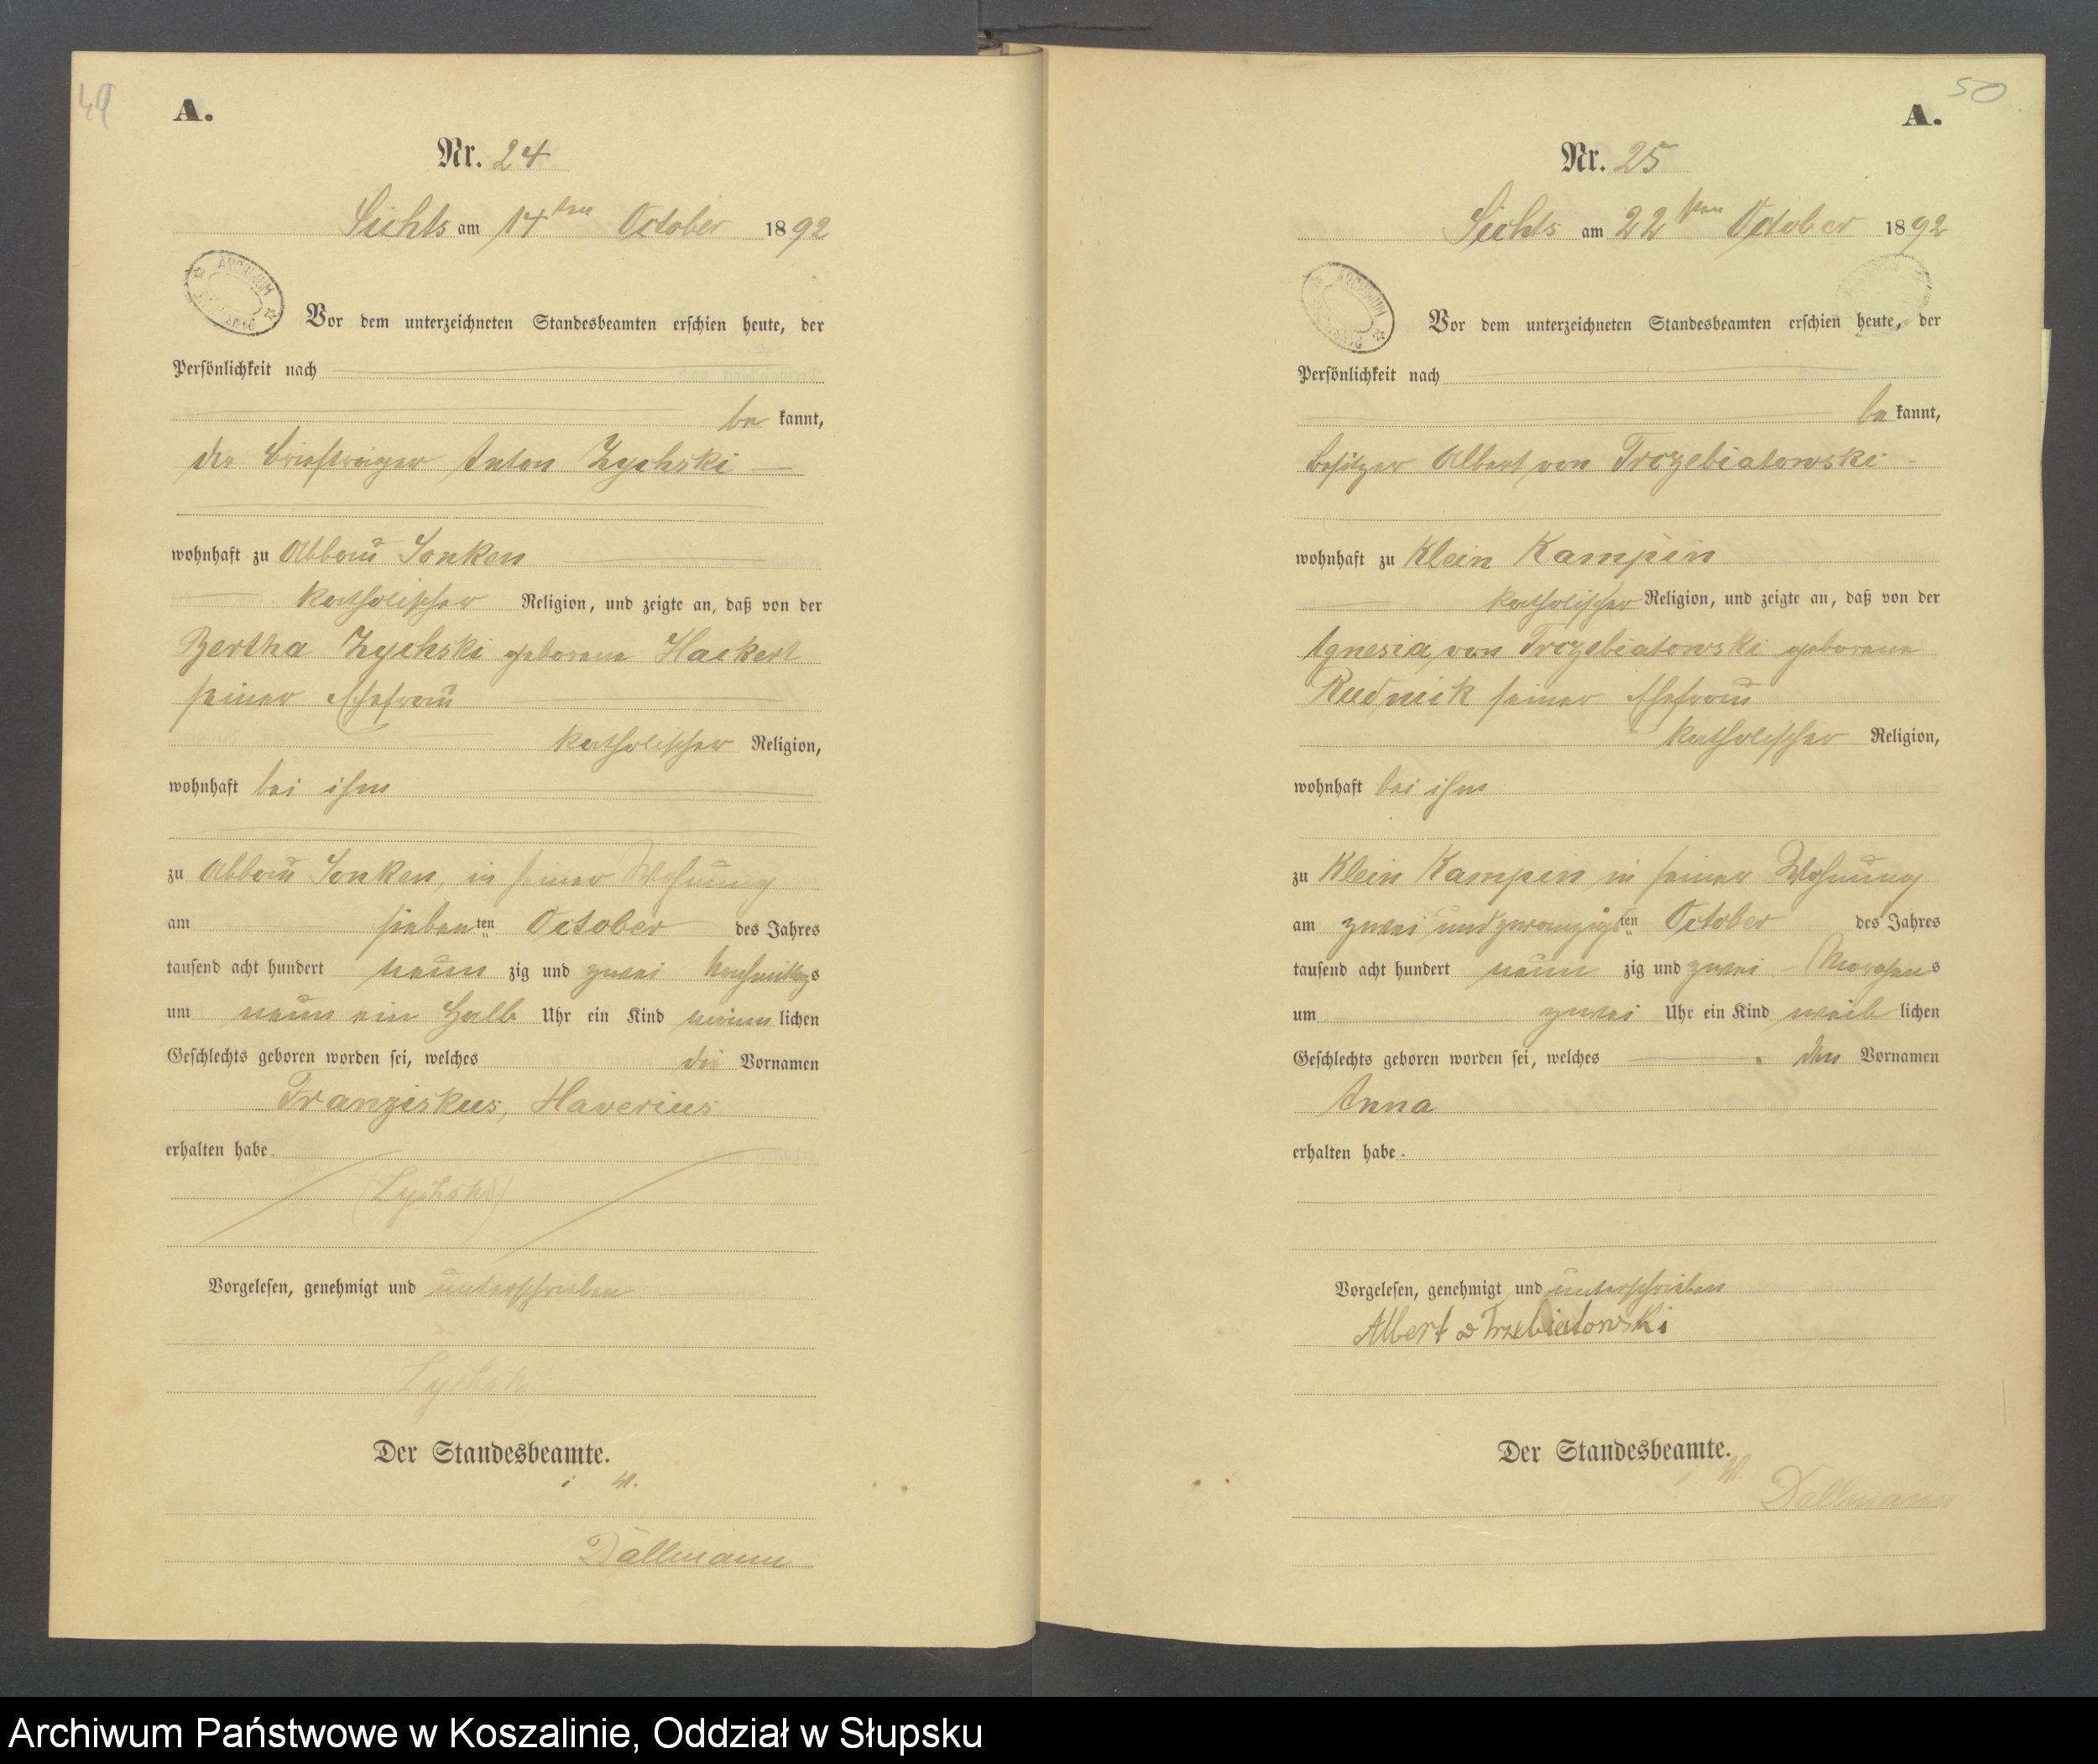 49
A.
Nr. 24
Sichts am 14ten October 1892
ARCHIWUM
Vor dem unterzeichneten Standesbeamten erschien heute, der
Persönlichkeit nach
be kannt,
der Briefträger Anton Zychski
wohnhaft zu Abbau Sonken
katholischer Religion, und zeigte an, daß von der
Bertha Zychski geborene Hackert
seiner Ehefrau
katholischer Religion,
wohnhaft bei ihm
zu Abbau Sonken, in seiner Wohnung
am siebenten October des Jahres
tausend acht hundert neun zig und zwei Nachmittags
um neun ein halb Uhr ein Kind männlichen
Geschlechts geboren worden sei, welches die Vornamen
Franziskus, Haverius
erhalten habe.
Vorgelesen, genehmigt und unterschrieben
Der Standesbeamte.
i. V.
Dallmann
50
A.
Nr. 25
Sichts am 22ten October 1892
ARCHIWUM
Vor dem unterzeichneten Standesbeamten erschien heute, der
Persönlichkeit nach
be kannt,
Besitzer Albert von Trczebiatowski
wohnhaft zu Klein Kampin
katholischer Religion, und zeigte an, daß von der
Agnesia von Trczebiatowski geborene
Rudnick seiner Ehefrau
katholischer Religion,
wohnhaft bei ihm
zu Klein Kampin in seiner Wohnung
am zwei und zwanzigsten October des Jahres
tausend acht hundert neun zig und zwei Morgens
um zwei Uhr ein Kind weiblichen
Geschlechts geboren worden sei, welches den Vornamen
Anna
erhalten habe.
Vorgelesen, genehmigt und unterschrieben
Albert v Trzebiatowski
Der Standesbeamte.
i. V.
Dallmann
Archiwum Państwowe w Koszalinie, Oddział w Słupsku